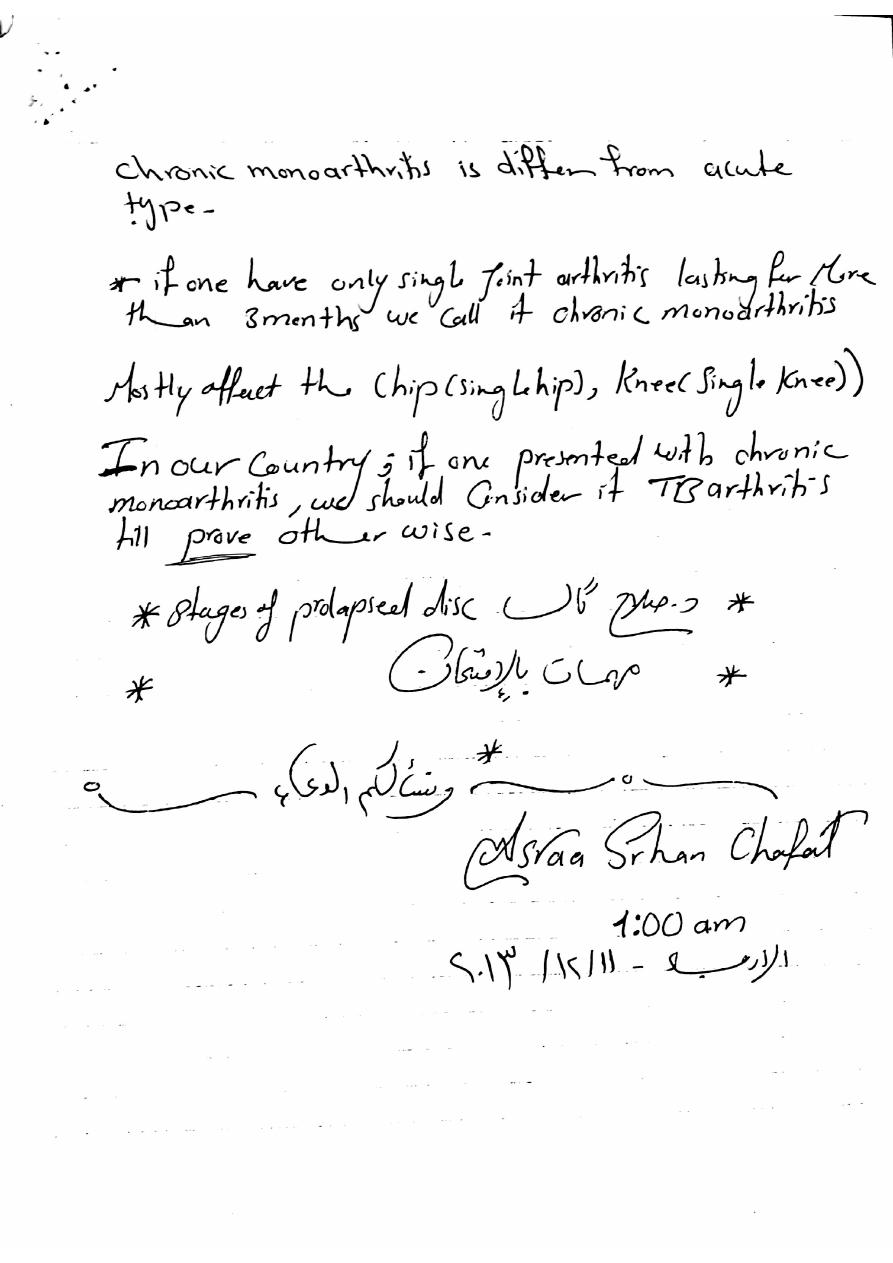 chronic monoarthritis is differ from acute
type-
* if one have only singl Joint arthritis lasting for More
than 3months we call it chronic monoarthritis
Mostly affect the (hip(single hip), Knee(Single Knee))
In our Country ; if one presented with chronic
monoarthritis, we should Consider it TB arthritis
till prove other wise-
* Stages of prolapsed disc د. صلاح گال *
* مهمات بالإمتحان *
*
ونسألكم الدعاء
Asraa Srhan Chafat
1:00 am
الاربعاء - ١١/١٢/ ٢٠١٣